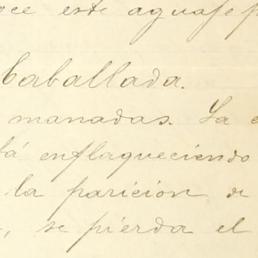 oce este aguaje p
Caballada.
manadas. La e
tá enflaqueciendo
la paricion de
, se pierda el